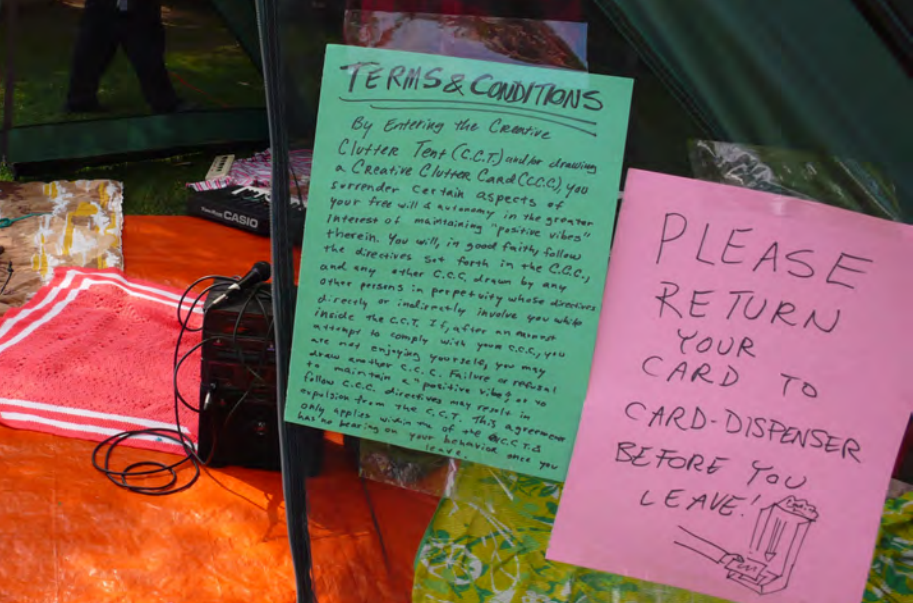 TERMS & CONDITIONS
By Entering the Creative
Clutter Tent (C.C.T.) and/or drawing
a Creative Clutter Card (C.C.C), you
surrender certain aspects of
your free will & autonomy in the greater
interest of maintaining "positive vibes"
therein. You will, in good faith, follow
the directives set forth in the C.C.C.,
and any other C.C.C. drawn by any
other persons in perpetuity whose directives
directly or indirectly involve you while
inside the C.C.T. If, after an earnest
attempt to comply with your C.C.C., you
are not enjoying yourself, you may
draw another C.C.C. Failure or refusal
to maintain a "positive vibe" or to
follow C.C.C. directives may result in
expulsion from the C.C.T. This agreement
only applies within of the C.C.T. &
has no bearing on your behavior once you
leave.
PLEASE
RETURN
YOUR
CARD TO
CARD-DISPENSER
BEFORE YOU
LEAVE!
CASIO